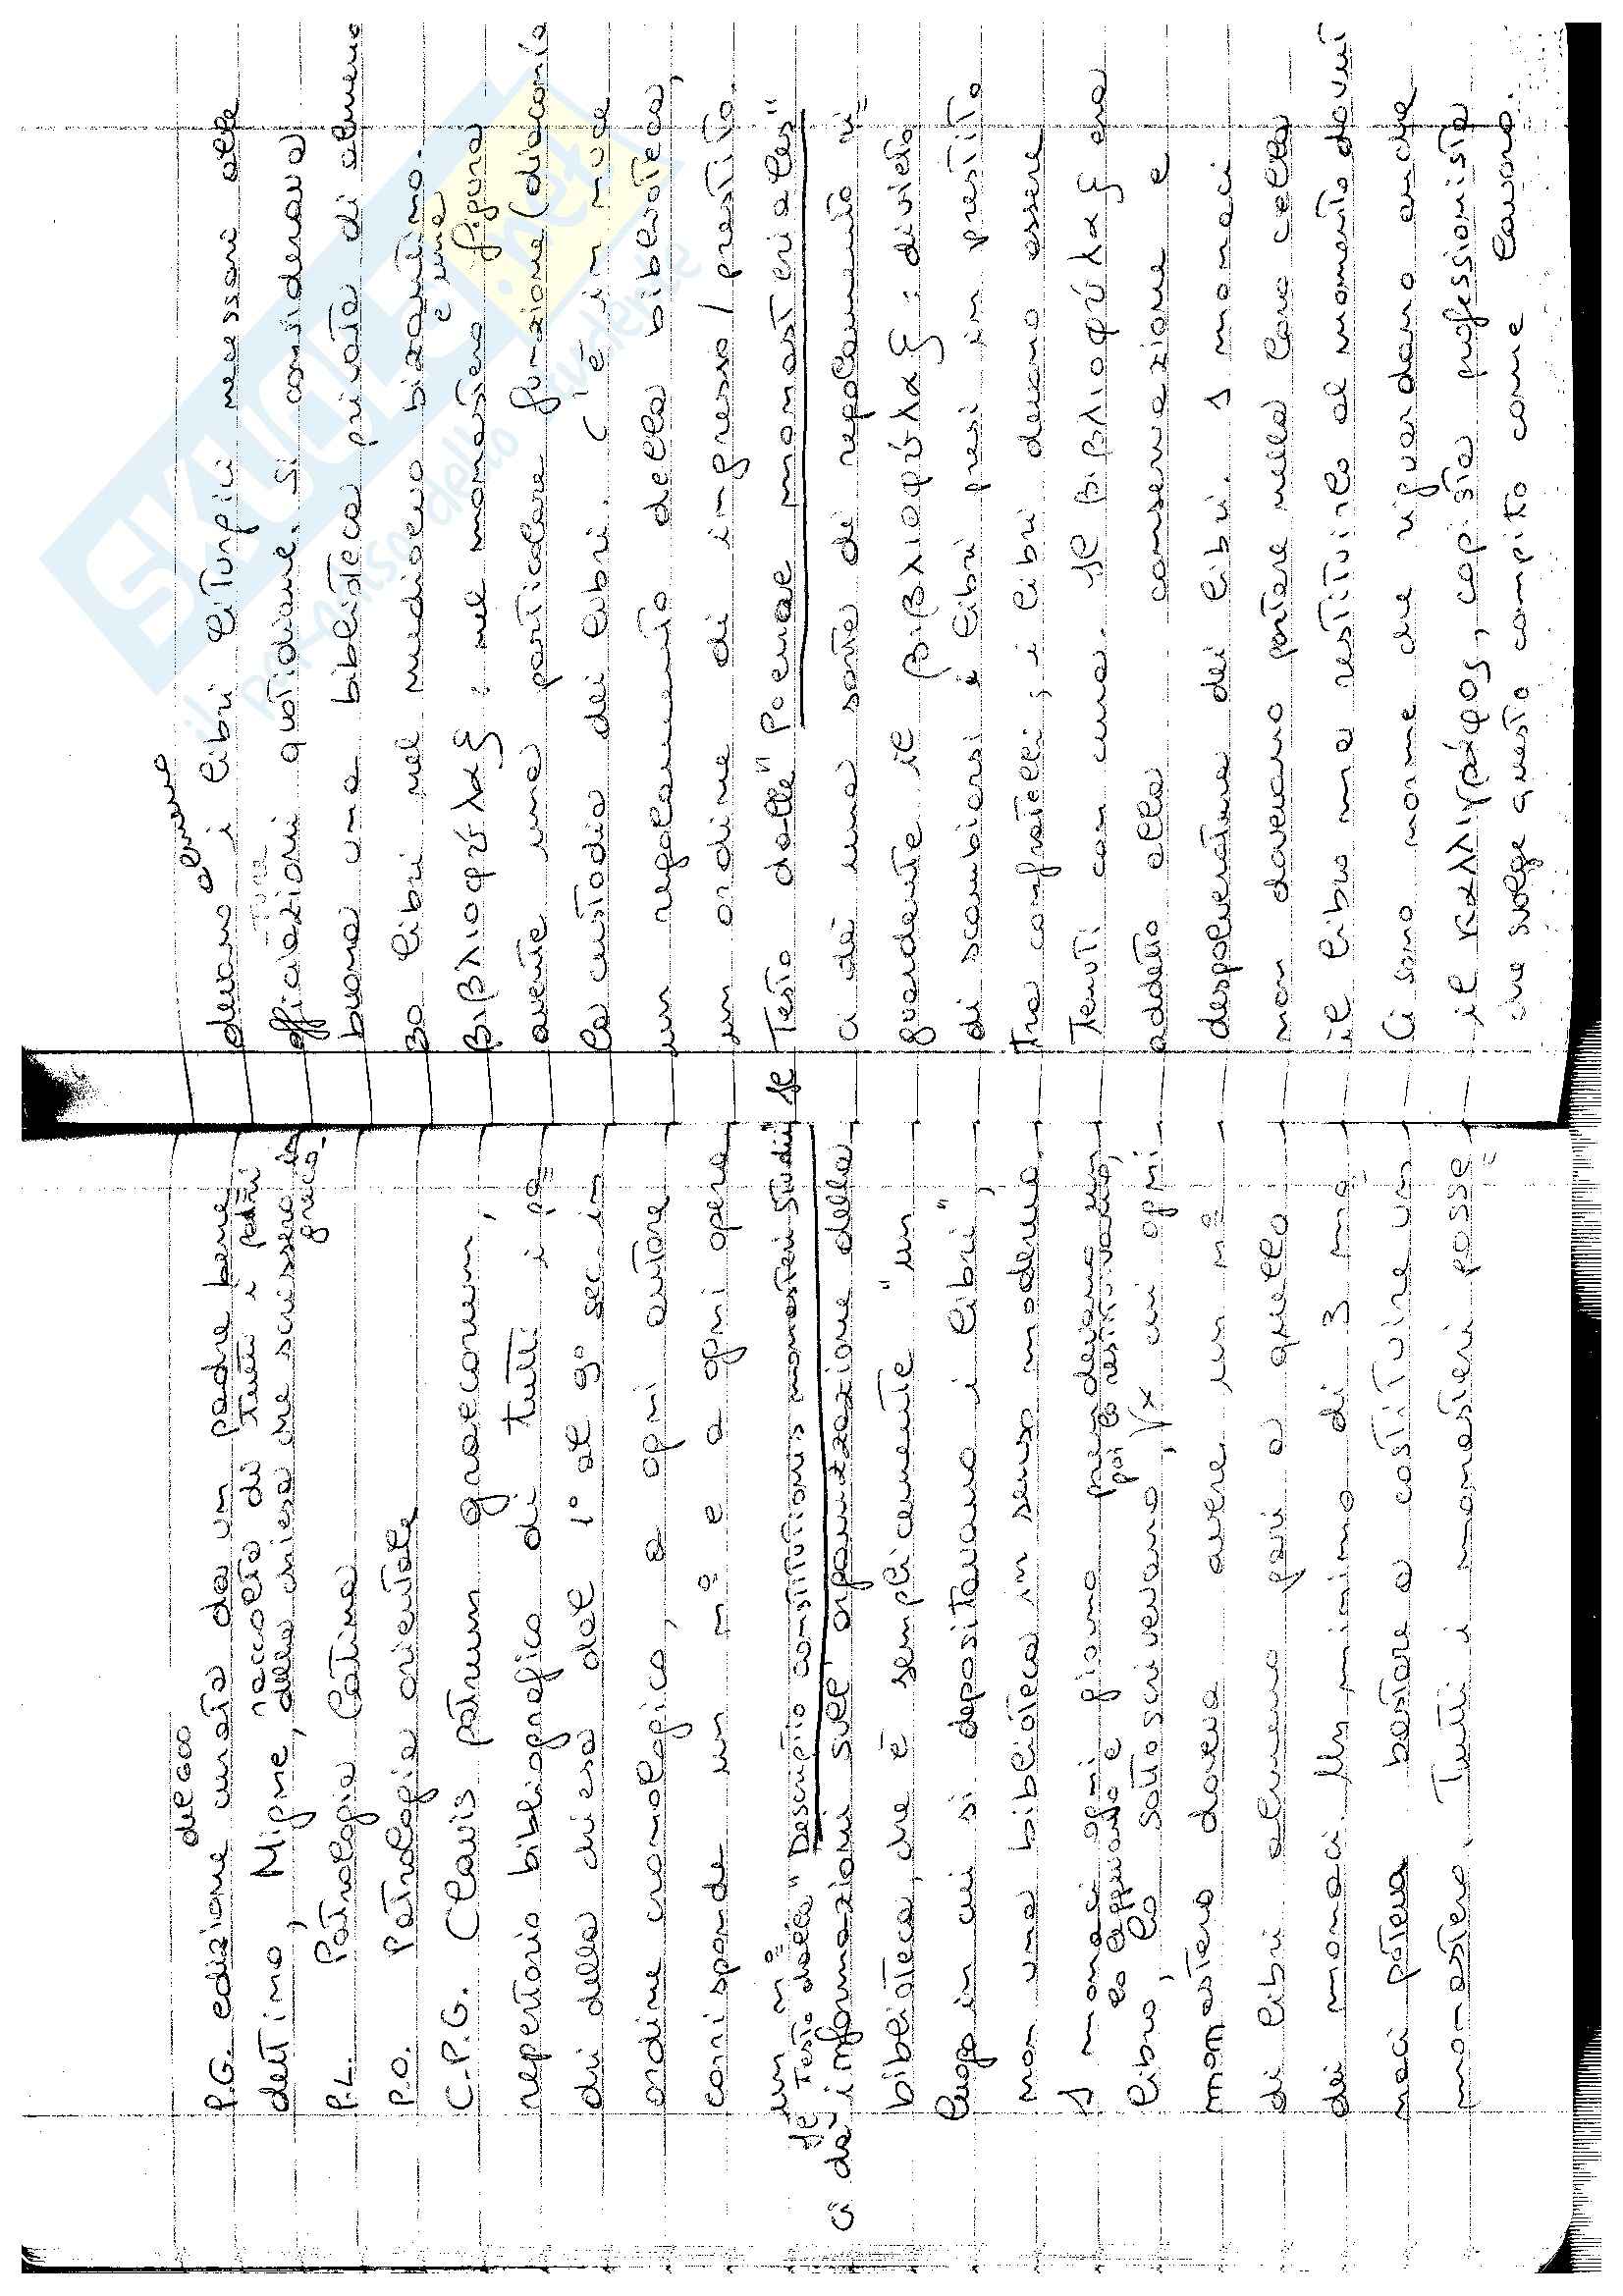 del 600
P.G. edizione curata da un padre bene
dettino, Migne, raccolta di tutti i padri
della chiesa che scrissero in greco
P.L. Patrologia latina
P.O. Patrologia orientale
C.P.G. Clavis patrum graecorum,
repertorio bibliografico di tutti i pa=
dri della chiesa dal 1° al 9° sec. in
ordine cronologico, a ogni autore
corrisponde un n° e a ogni opera
un n°
Il testo della "Descriptio constitutionis monasteri Studii"
ci dà informazioni sull'organizzazione della
biblioteca, che è semplicemente "un
luogo in cui si depositavano i libri",
non una biblioteca in senso moderno.
I monaci ogni giorno prendevano un
libro, lo leggevano e poi lo restituivano,
lo sottoscrivevano, x cui ogni
monastero doveva avere un n°
di libri almeno pari a quello
dei monaci. Un minimo di 3 mo=
naci poteva bastare a costituire un
monastero. Tutti i monasteri posse=
devano almeno i libri liturgici necessari alle
officiature quotidiane. Si considerava
buona una biblioteca privata di almeno
30 libri nel medioevo bizantino.
βιβλιοφύλαξ: nel monastero è una figura
avente una particolare funzione (diaconia
la custodia dei libri. C'è in nuce
un regolamento della biblioteca,
un ordine di ingresso/prestito.
Il Testo delle "Poenae monasteriales"
ci dà una sorta di regolamento ri=
guardante il βιβλιοφύλαξ: divieto
di scambiarsi i libri presi in prestito
tra confratelli; i libri devono essere
tenuti con cura. Il βιβλιοφύλαξ era
addetto alla conservazione e
despolveratura dei libri. I monaci
non dovevano portare nella loro cella
il libro ma restituirlo al momento dovuto
Ci sono norme che riguardano anche
il καλλιγράφος, copista professionista
che svolge questo compito come lavoro.
SKUOLA.net
il paradiso dello studente